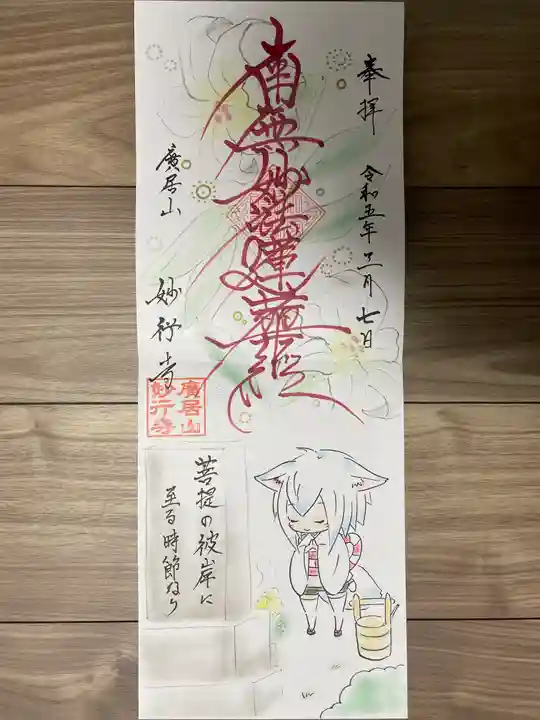 奉拝
令和五年三月七日
南無妙法蓮華経
廣居山
妙行寺
廣居山
妙行寺
菩提の彼岸に
至る時節なり